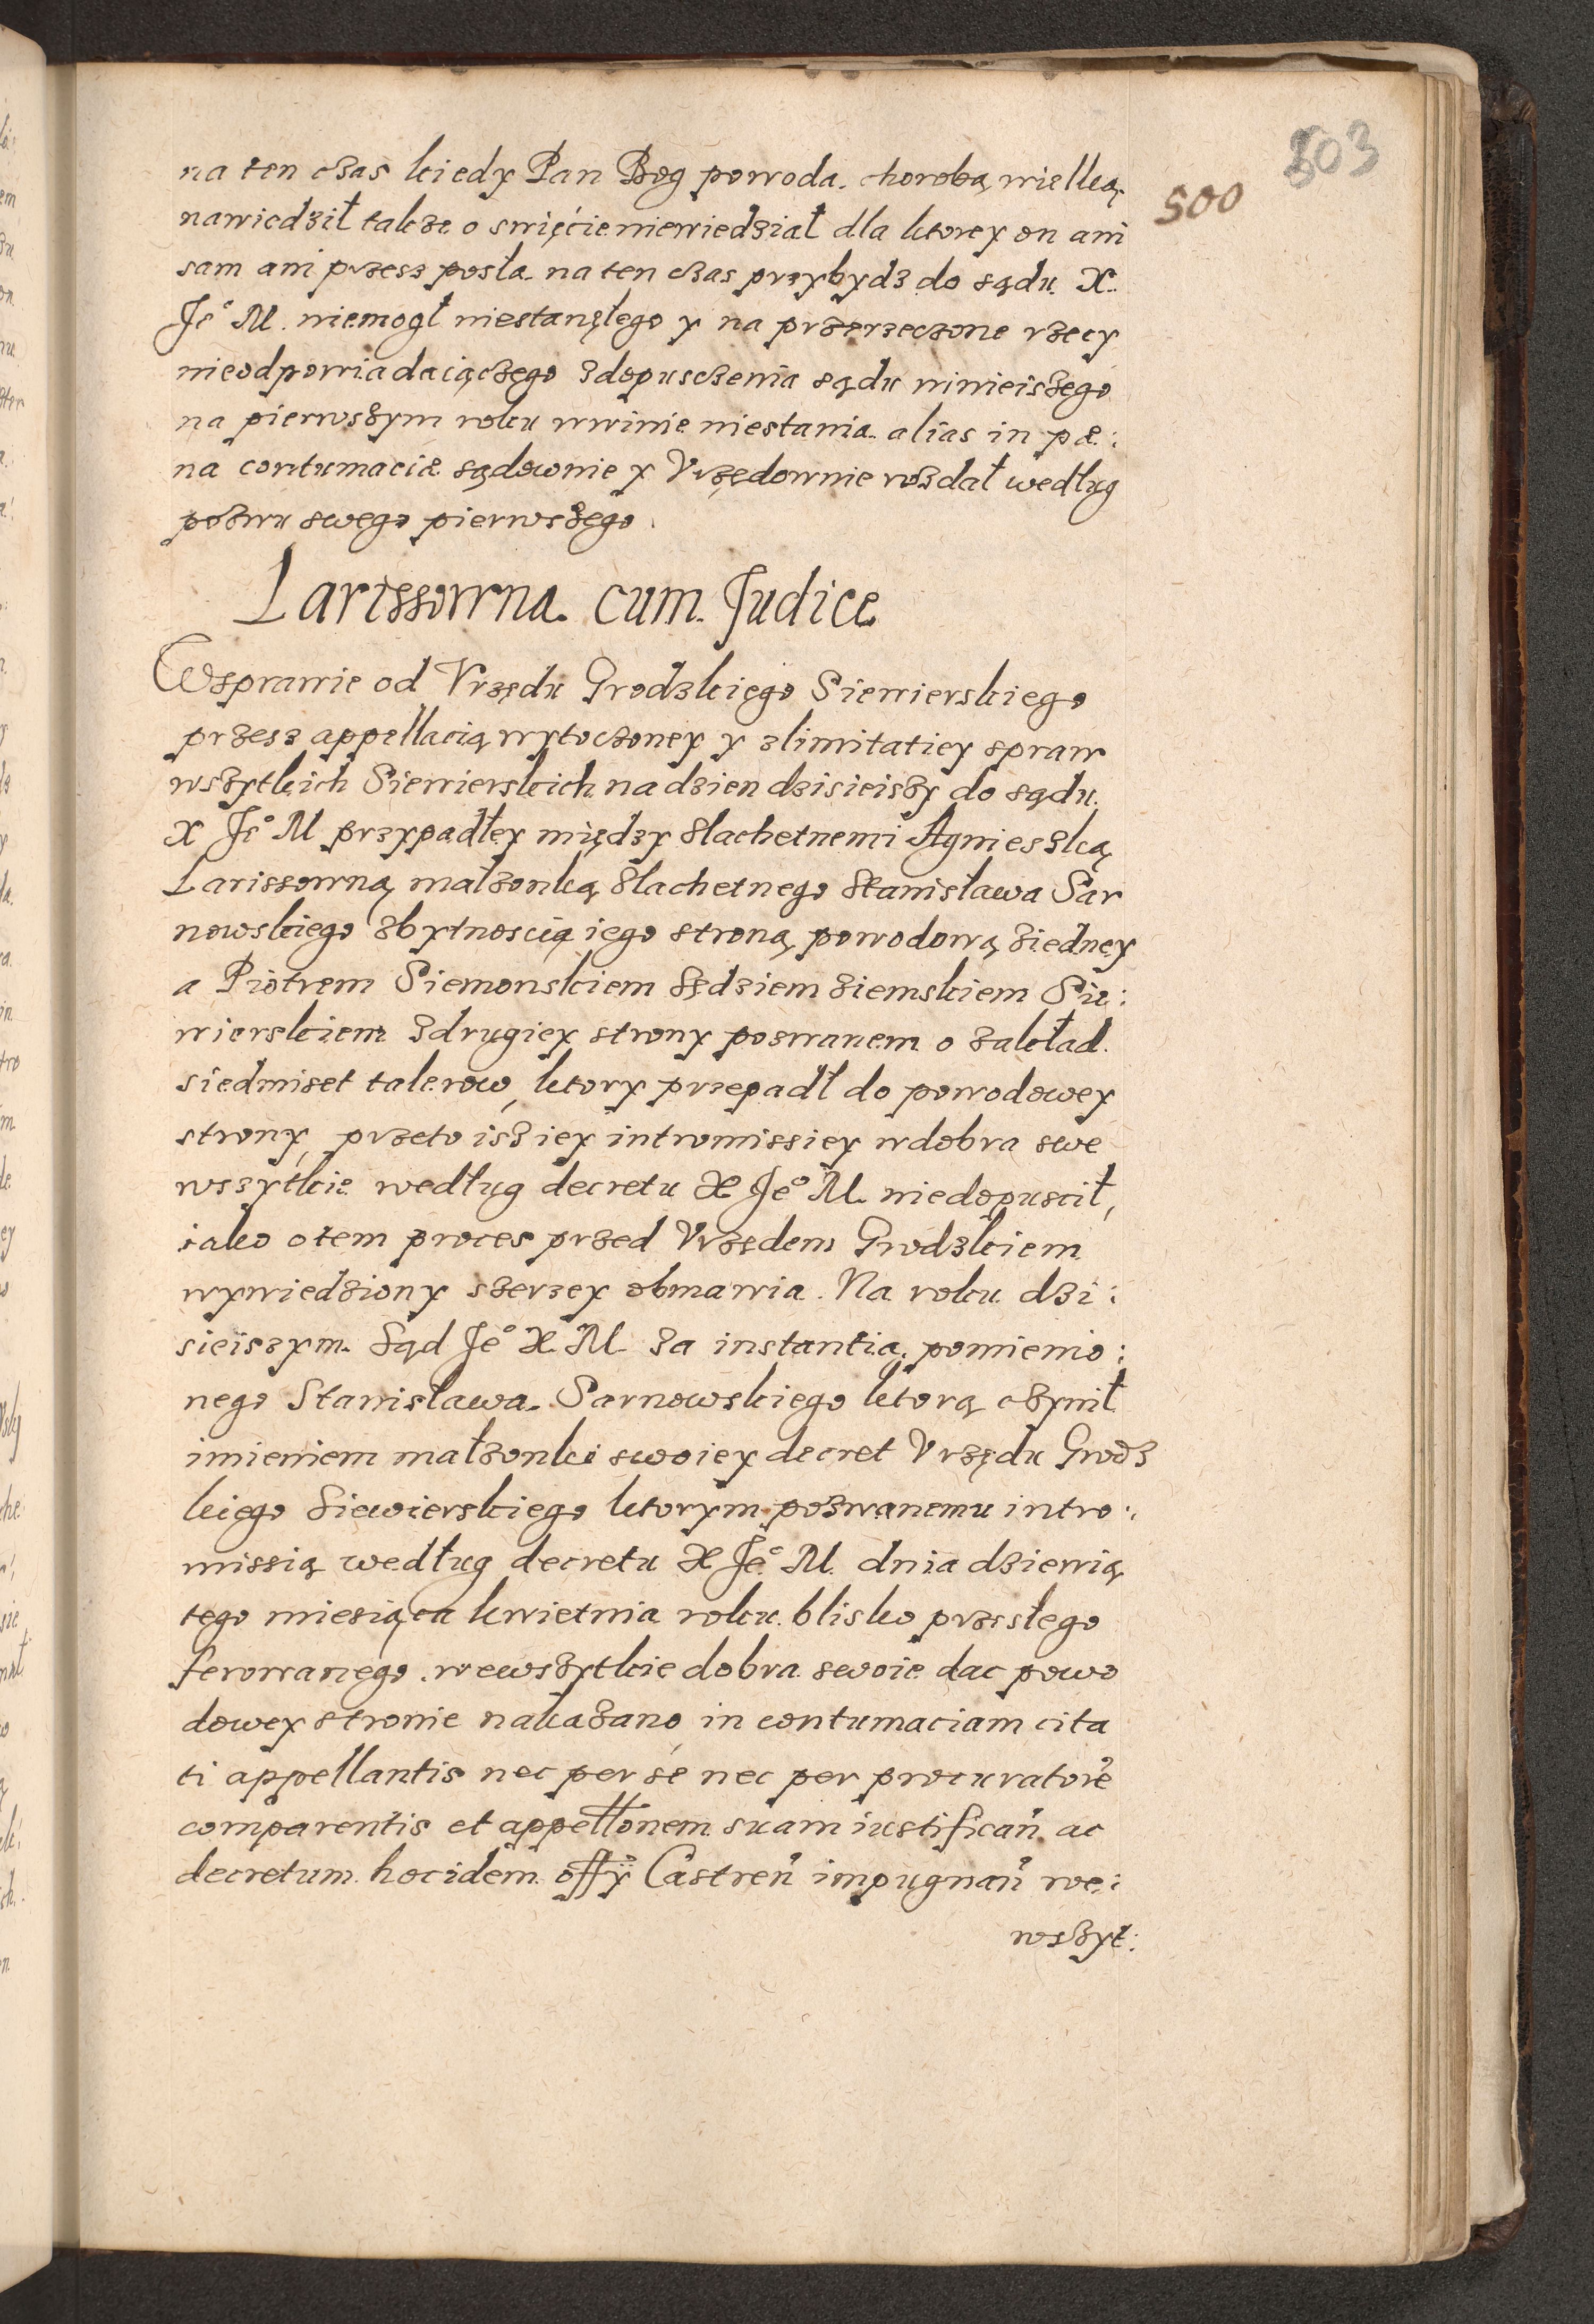 503
500
na ten czas kiedy Pan Bog powoda choroba wielką
nawiedził takze o swięcie niewiedział dla ktorey on ani
sam ani przesz posła na ten czas przybydz do sądu X.
Je° M. niemogł niestanęłego y na przerzeczone rzecy
nieodpowiadaiączego zdopusczenia sądu ninieiszego
na pierwszym roku wwinie niestania alias in pæ:
na contumaciæ sądownie y Vrzędownie wzdał według
pozwu swego pierwszego.
Larissowna cum Judice
Wsprawie od Vrzędu Grodzkięgo Siewierskiego
przesz appellacią wytoczoney y zlimitatiey spraw
wszytkich Siewierskich na dzien dzisieiszy do sądu
X Je° M przypadłey między slachetnemi Agnieszką
Larissowną małzonką slachetnego Stanisława Sar
nowskiego zbytnoscią iego stroną powodową ziedney
a Piotrem Siemonskiem sędziem ziemskiem Sie:
wierskiem zdrugiey strony pozwanem o zakład
siedmiset talerow, ktory przepadł do powodowey
strony, przeto isz iey intromissiey wdobra swe
wszytkie według decretu X Je° M. niedopuscił,
iako otem proces przed Vrzędem Grodzkiem
wywiedziony szerzey obmawia. Na roku dzi:
sieiszym. Sąd Je° X. M za instantią pomienio:
nego Stanisława Sarnowskiego ktorą czynił
imieniem małzonki swoiey decret Vrzędu Grodz
kięgo Siewierskiego ktorym pozwanemu intro:
missią według decretu X Je° M. dnia dziewią
tego miesiąca kwietnia roku blisko przesłego
ferowanego wewszytkie dobra swoie dac powo
dowey stronie nakazano, in contumaciam cita
ti appellantis nec per se nec per procuratorē
comparentis et appellōnem suam iustifican̄ ac
decretum hoc idem offÿ Castren̄ impugnan̄ we:
wszyt: